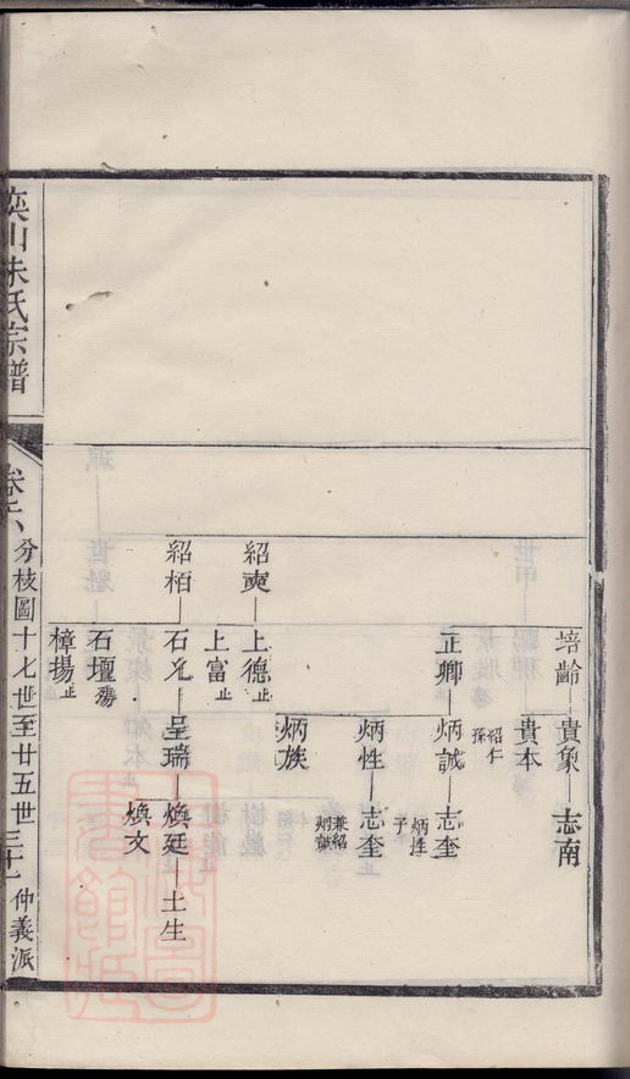 培齡
貴象
志南
貴本
紹仁孫
正卿
炳誠
志奎
炳性子
炳性
志奎
兼紹炳誠
炳族
紹奭
上德止
上富止
紹栢
石允
呈瑞
煥廷
土生
煥文
石壇殤
樟揚止
奕山朱氏宗譜
分枝圖十七世至廿五世
仲義派